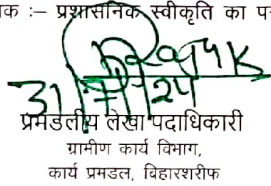 क :– प्रशासनिक स्वीकृति का प
31 24
प्रमंडलीय लेखा पदाधिकारी
ग्रामीण कार्य विभाग,
कार्य प्रमंडल, बिहारशरीफ